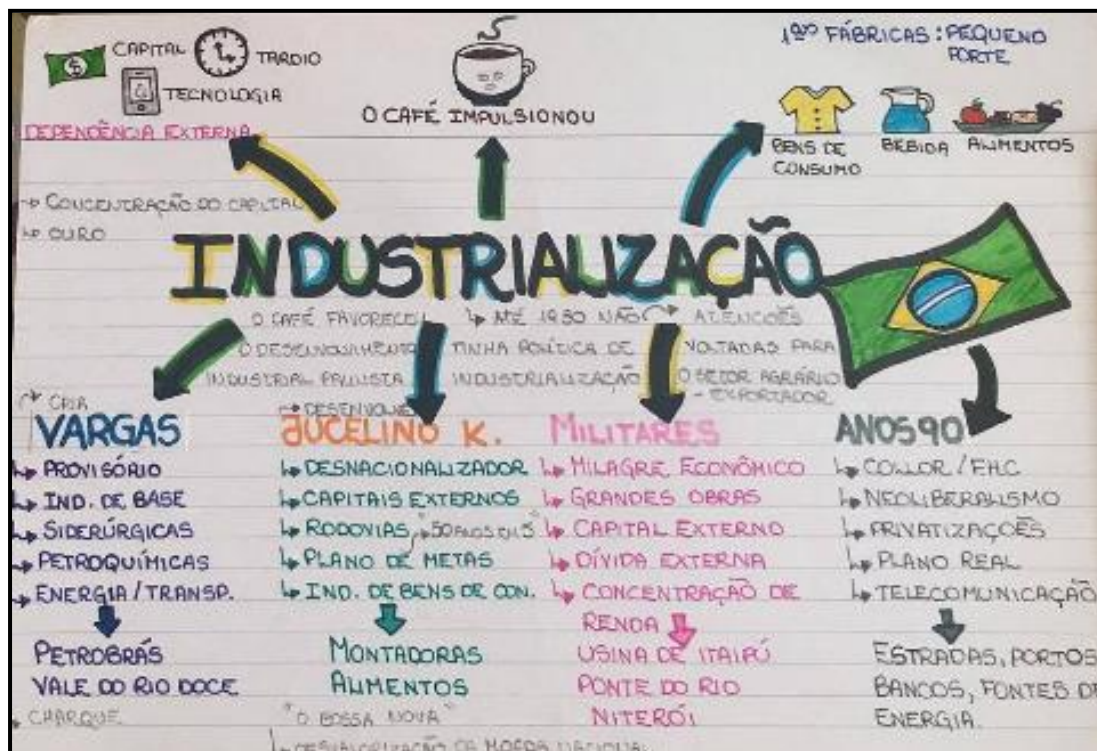 CAPITAL
TARDIO
TECNOLOGIA
DEPENDÊNCIA EXTERNA
→ CONCENTRAÇÃO DO CAPITAL
↳ OURO
O CAFÉ IMPULSIONOU
1ªs FÁBRICAS: PEQUENO
PORTE
BENS DE
CONSUMO
BEBIDA
ALIMENTOS
INDUSTRIALIZAÇÃO
O CAFÉ FAVORECEU
O DESENVOLVIMENTO
INDUSTRIAL PAULISTA
↳ ATÉ 1930 NÃO
TINHA POLÍTICA DE
INDUSTRIALIZAÇÃO
ATENÇÕES
VOLTADAS PARA
O SETOR AGRÁRIO
- EXPORTADOR
CRIA
VARGAS
↳ PROVISÓRIO
↳ IND. DE BASE
↳ SIDERÚRGICAS
↳ PETROQUÍMICAS
↳ ENERGIA / TRANSP.
PETROBRÁS
VALE DO RIO DOCE
CHARQUE
→ DESENVOLVE
JUCELINO K.
↳ DESNACIONALIZADOR
↳ CAPITAIS EXTERNOS
↳ RODOVIAS "50 ANOS EM 5"
↳ PLANO DE METAS
↳ IND. DE BENS DE CON.
MONTADORAS
ALIMENTOS
"O BOSSA NOVA"
↳ DESVALORIZAÇÃO DA MOEDA NACIONAL
MILITARES
↳ MILAGRE ECONÔMICO
↳ GRANDES OBRAS
↳ CAPITAL EXTERNO
↳ DÍVIDA EXTERNA
↳ CONCENTRAÇÃO DE
RENDA
USINA DE ITAIPÚ
PONTE DO RIO
NITERÓI
ANOS 90
↳ COLLOR / FHC
↳ NEOLIBERALISMO
↳ PRIVATIZAÇÕES
↳ PLANO REAL
↳ TELECOMUNICAÇÃO
ESTRADAS, PORTOS
BANCOS, FONTES DE
ENERGIA.